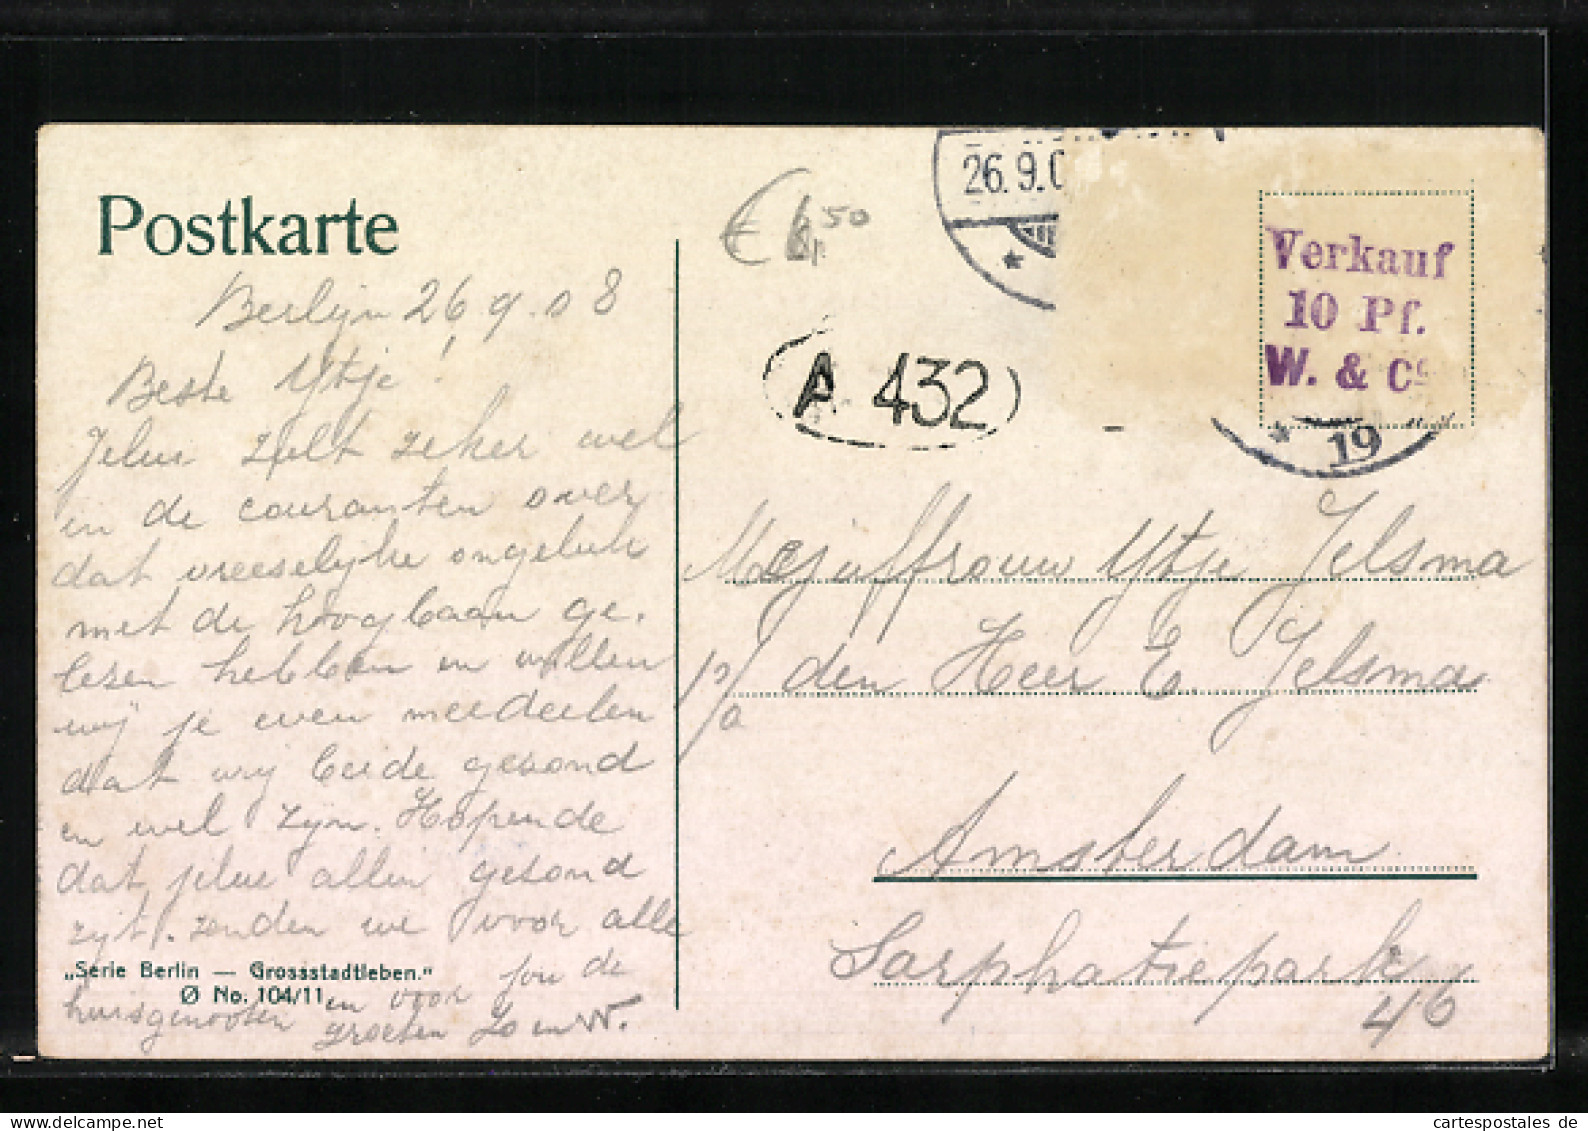 Postkarte
Berlijn 26 9.08
Beste Ytje!
Jelui zult zeker wel
in de couranten over
dat vreeselijke ongeluk
met de hoogbaan ge-
lezen hebben en willen
wij je even meedeelen
dat wij beide gezond
en wel zijn. Hopende
dat jelui allen gezond
zijt. zenden we voor alle
huisgenooten en voor jou de
groeten Jo en W.
„Serie Berlin — Grossstadtleben."
Ø No. 104/11
€ 6,50
26.9.0
A 432
Verkauf
10 Pf.
W. & Co
19
Mejuffrouw Ytje Jelsma
p/a den Heer E. Jelsma
Amsterdam
Sarphatiepark
46
cartespostales de
www.delcampe.net